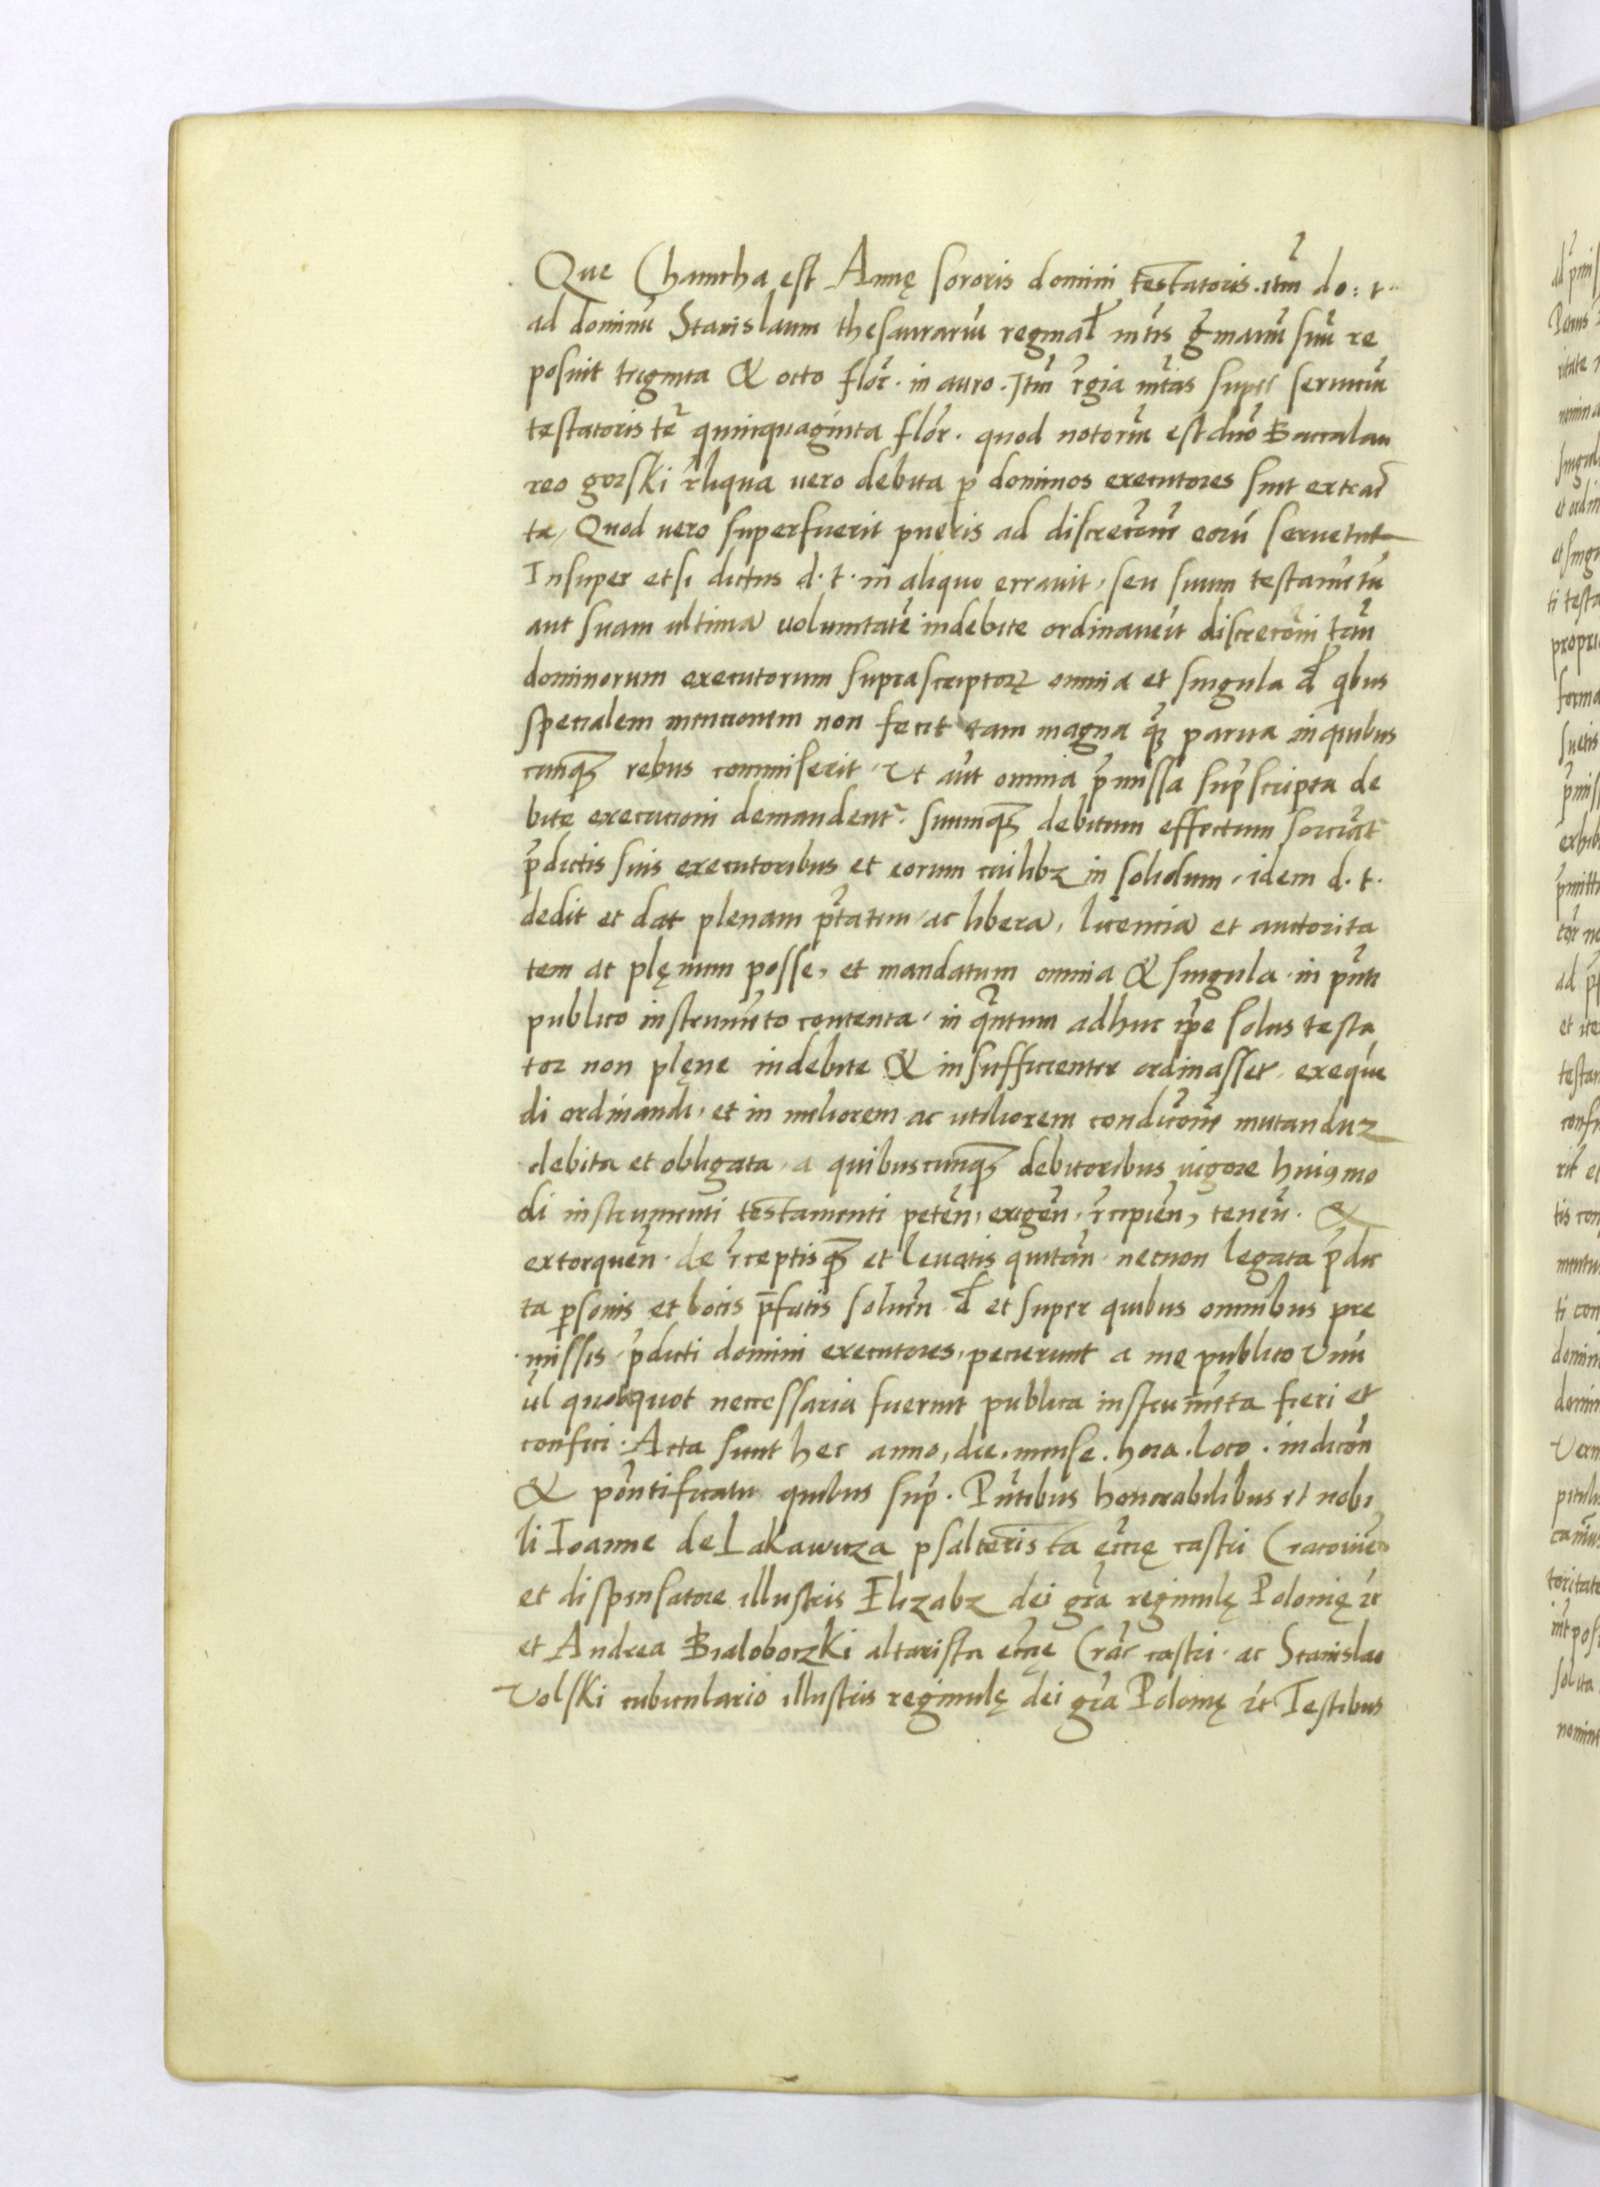 Que Chamcha est Annę sororis domini testatoris. itm̃ do: t.
ad dominũ Stanislaum thesaurariũ reginal mt̃is g̃manũ suũ re
posuit triginta & octo flor̃. in auro. Itm̃ r̃gia mt̃as super seruiciũ
testatoris te᷑ quinquaginta flor̃. quod notoriũ est dño Baccalau
reo gorski r̃liqua uero debita p dominos executores sint extrac̃
ta, Quod uero superfuerit pueris ad discrecom̃ eorũ seruetur
Insuper etsi dictus d. t. in aliquo errauit, seu suum testamẽtũ
aut suam ultimã uoluntatẽ indebite ordinauerit discrecõni tam̃
dominorum executorum suprascriptoꝝ omnia et singula d̃ qbus
specialem mencionem non fecit tam magna qꝫ parua in quibus
cunqꝫ rebus commiserit. Ut aũt omnia p̃missa sup̃scripta de
bite execucioni demandent᷑. suumqꝫ debitum effectum sorciãt
p̃dictis suis executoribus et eorum cuilibꝫ in solidum, idem d. t.
dedit et dat plenam pt̃atem, ac liberã, licenciã et auctorita
tem ac plęnum posse, et mandatum omnia & singula in pñti
publico instrumẽto contenta, in qñtum adhuc ip̃e solus testa
tor non plęne indebite & insufficienter ordinasset, exequẽ
di ordinandi, et in meliorem ac utiliorem condicom̃ mutandiz
debita et obligata, a quibuscunqꝫ debitoribus uigore huiꝯmo
di instrumenti testamenti petẽn, exigẽn, r̃cipiẽn, tenẽn. &
extorquẽn. de r̃ceptisqꝫ et leuatis quitãn. necnon legata p̃dic
ta p̱sonis et locis p̃fatis soluẽn. d̃ et super quibus omnibus pre
missis, p̃dicti domini executores, pecierunt a mę publico Unũ
ul̃ quotquot neccessaria fuerint publica instrumẽta fieri et
confici. Acta sunt hec anno, die, mense, hora. loco. indicõn
& põntificatu quibus sup̃. Pñtibus honorabilibus et nobi
li Ioanne de Lakawicza psalterista ecc̃lię castri Cracouiẽ
et dispensatore illustris Elizabꝫ dei grã reginulę Polonię r̃c
et Andrea Bialoborzki altarista ecc̃łe Crãc castri. ac Stanislao
Volski cubiculario illustris reginulę dei grã Polonię r̃c Testibus